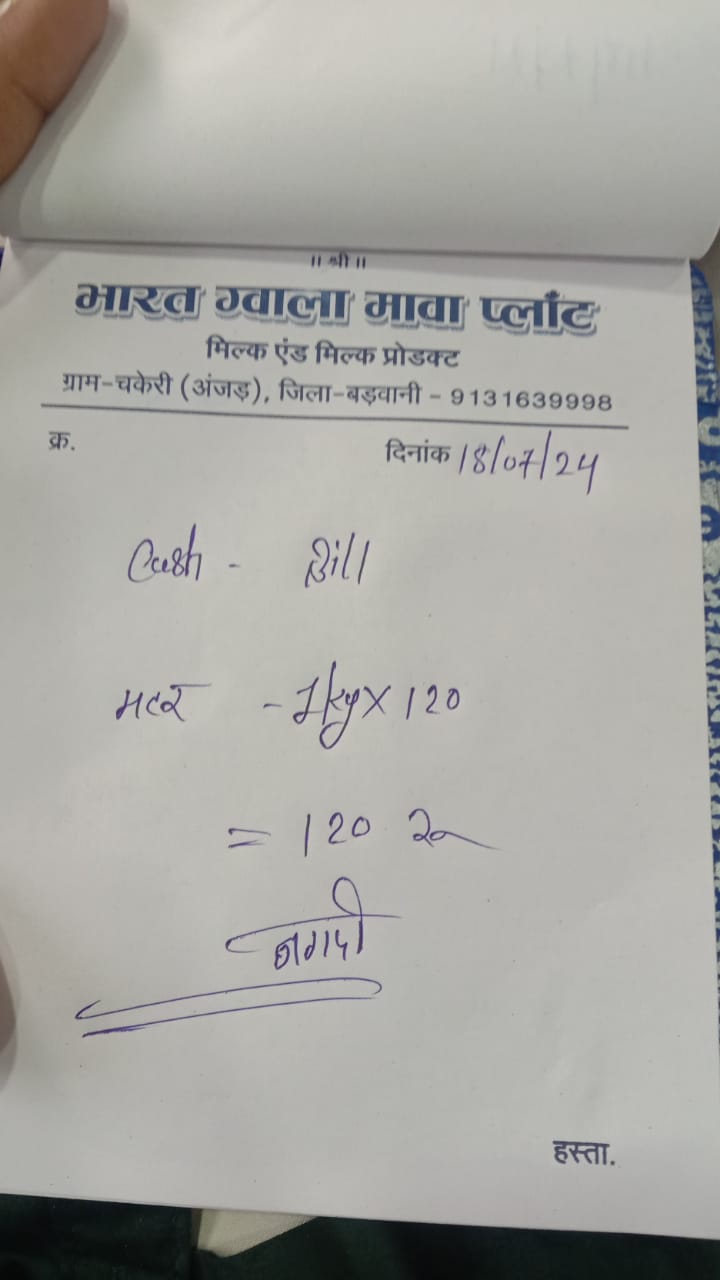 ॥ श्री ॥
भारत ग्वाला मावा प्लाँट
मिल्क एंड मिल्क प्रोडक्ट
ग्राम-चकेरी (अंजड़), जिला-बड़वानी - 9131639998
क्र. दिनांक 18/07/24
Cash - Bill
मटर - 1kg X 120
= 120 रु
नगदी
हस्ता.